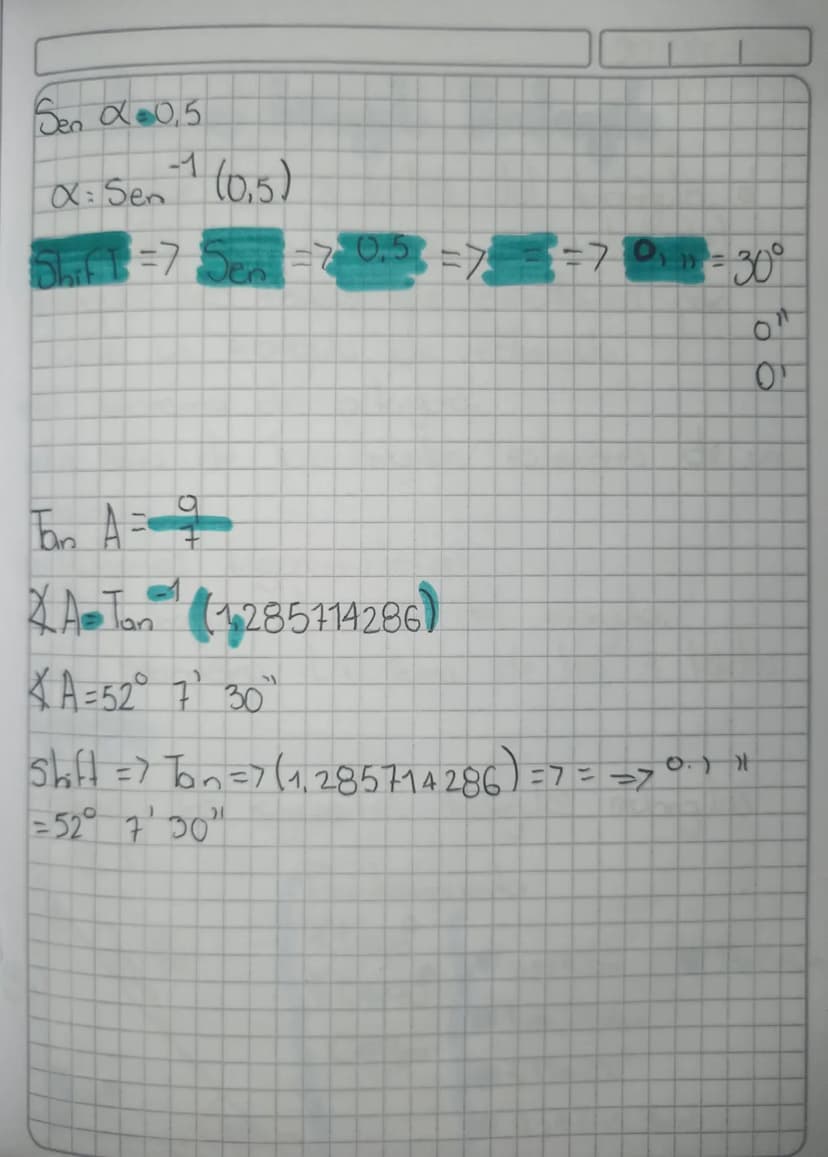 Sen α=0,5
α: Sen⁻¹ (0,5)
Shift => Sen => 0.5 => = => 0, ,, = 30°
0"
0'
Tan A = 9/7
∡A=Tan⁻¹ (1,285714286)
∡A=52° 7' 30"
Shift => Tan => (1,285714286) => = => 0. , ,,
=52° 7' 30"